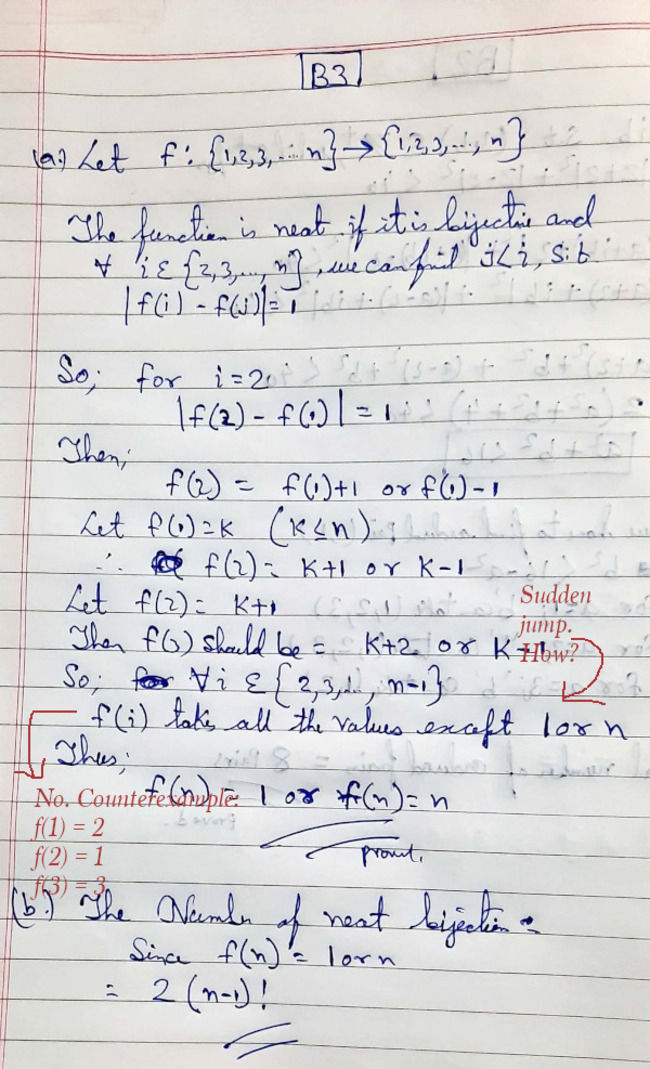 B3
(a.) Let f: {1,2,3,....n}→{1,2,3,...,n}
The function is neat if it is bijective and
∀ i ε {2,3,...,n}, we can find j<i, s.t
|f(i) - f(j)| = 1
So; for i=2
|f(2) - f(1)| = 1
Then;
f(2) = f(1)+1 or f(1)-1
Let f(1)=k (k≤n)
∴ f(2)= k+1 or k-1
Let f(2)= k+1
Sudden
jump.
How?
Then f(3) should be = k+2 or k-1
So; ∀ i ε {2,3,..., n-1}
f(i) takes all the values except 1 or n
Thus;
f(n) = 1 or f(n)=n
No. Counterexample:
f(1) = 2
f(2) = 1
f(3) = 3
proved.
(b.) The Number of neat bijection =
Since f(n) = 1 or n
= 2 (n-1)!